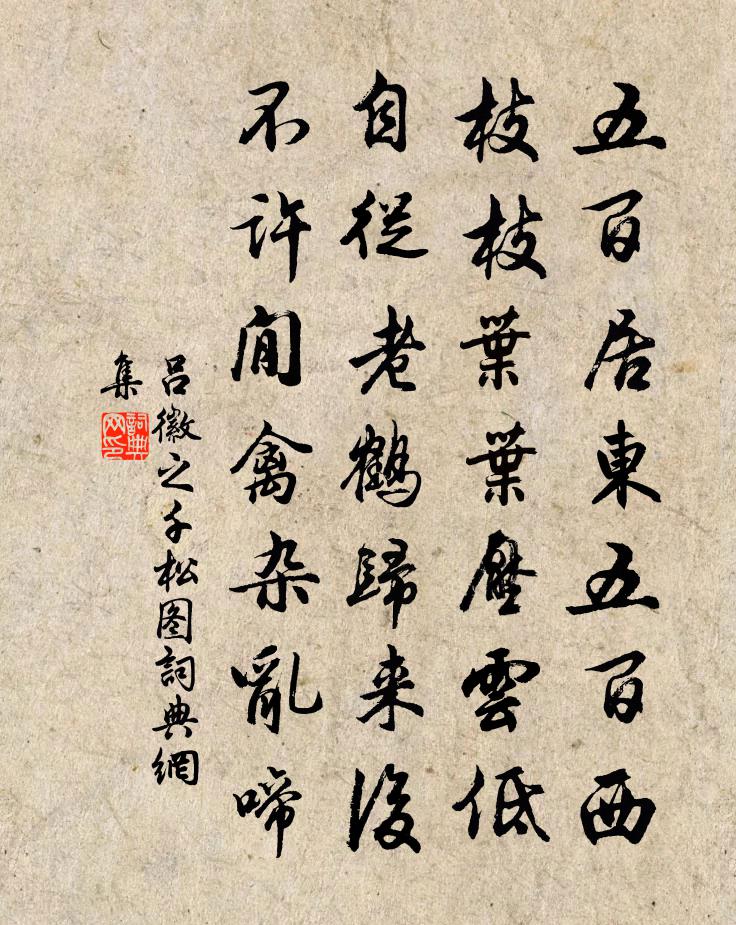 五百居東五百西
枝枝葉葉壓雲低
自從老鶴歸来後
不許閒禽杂亂啼
吕徽之千松图詞典網
集
詞典网印